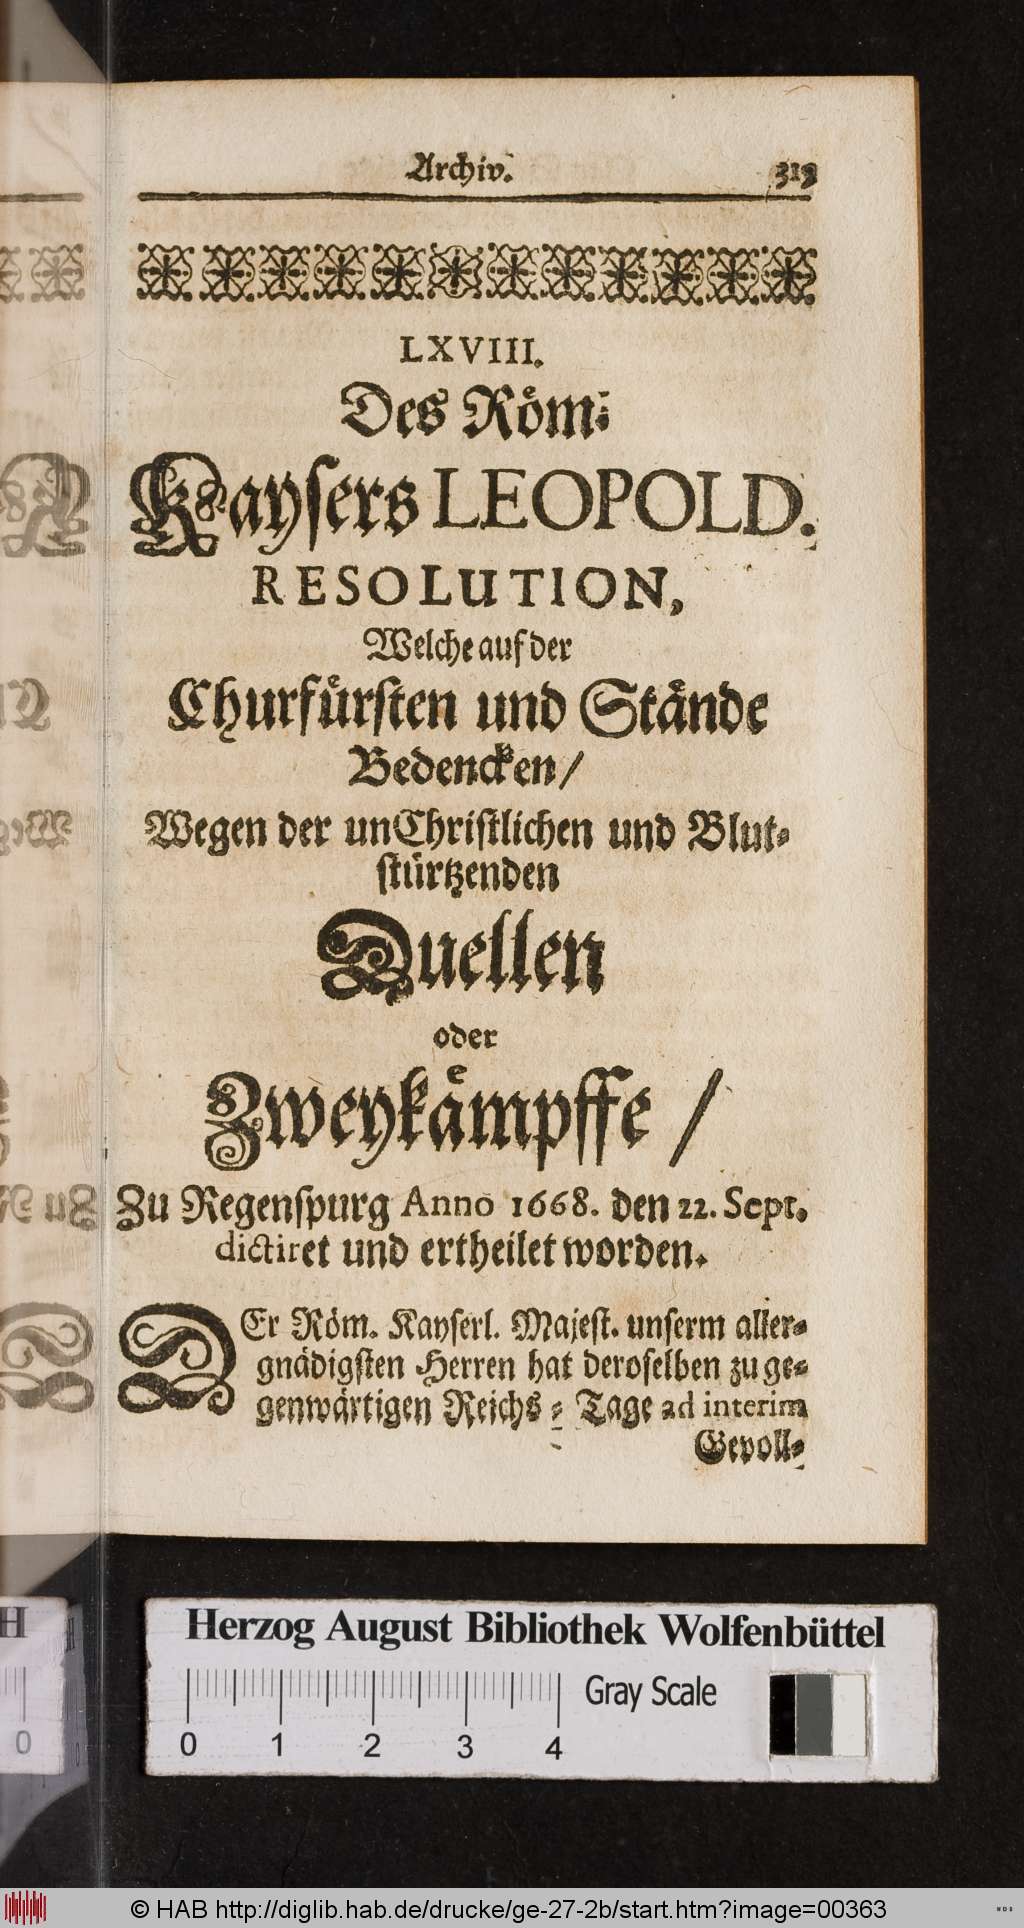 Archiv. 319
LXVIII.
Des Röm:
Kaysers LEOPOLD.
RESOLUTION,
Welche auf der
Churfürsten und Stände
Bedencken/
Wegen der unChristlichen und Blut-
stürtzenden
Duellen
oder
Zweykämpffe /
Zu Regenspurg Anno 1668. den 22. Sept.
dictiret und ertheilet worden.
DEr Röm. Kayserl. Majest. unserm aller-
gnädigsten Herren hat deroselben zu ge-
genwärtigen Reichs - Tage ad interim
Gevoll-
Herzog August Bibliothek Wolfenbüttel
Gray Scale
0 1 2 3 4
© HAB http://diglib.hab.de/drucke/ge-27-2b/start.htm?image=00363